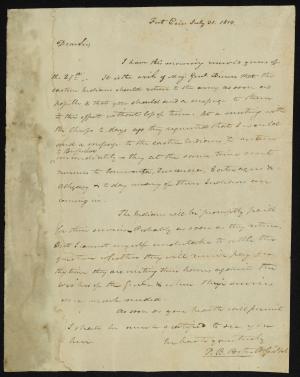 Fort Erie July 31. 1814.
Dear Sir
I have this morning received yours of
the 29th. It is the wish of Maj. Genl. Brown that the
eastern Indians should return to the army as soon as
possible & that you should send a message to them
to this effect without loss of time. At a meeting with
the chiefs 2 days ago they requested that I would
send a message to the eastern Indians to return
immediately & they at the same time sent
runners to Tonawanta,
Allegany & to day many of their Indians are
coming in.
The Indians will be promptly paid
for their services Probably as soon as they return
But I cannot myself undertake to settle the
question whether they will receive pay for
the time they are visiting their homes against the
wishes of the Genl. & when their services
are so much needed.
As soon as your health will permit
I shall be much gratified to see you
here
P. B. Porter